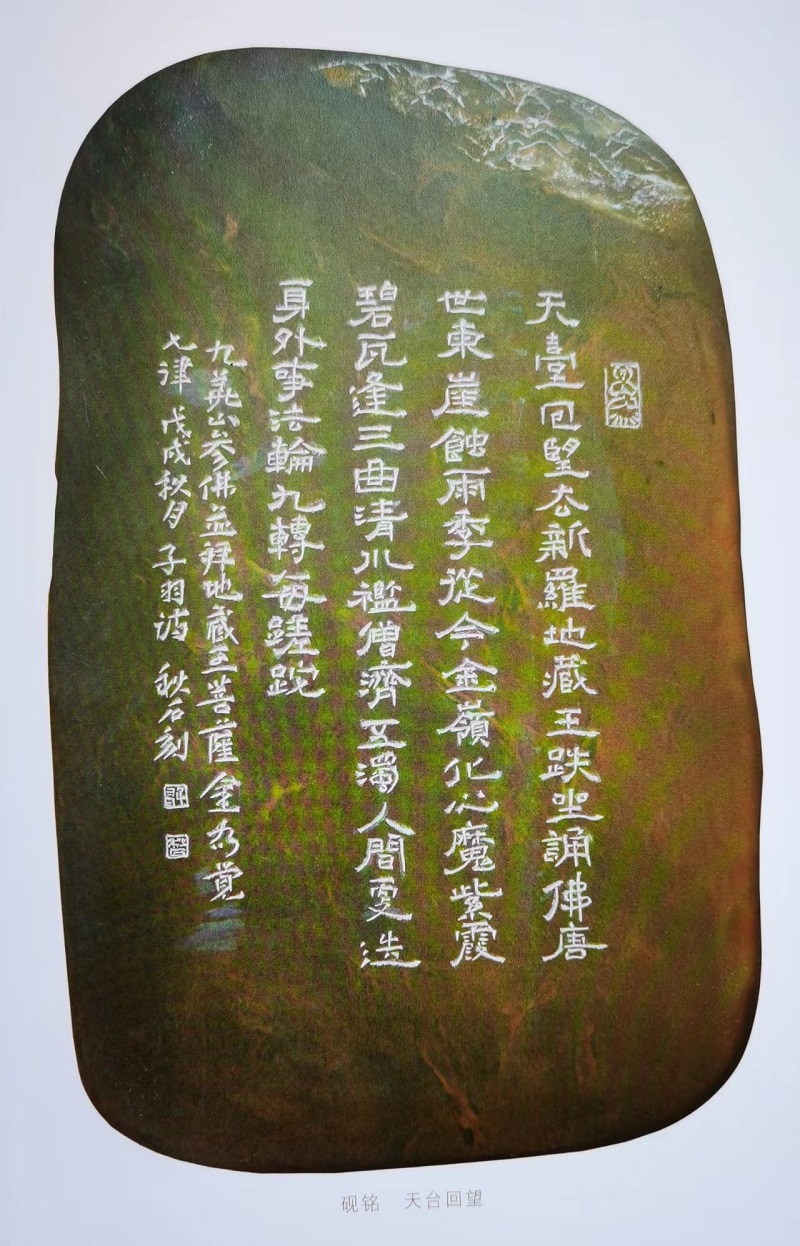 天臺回望去新羅地藏王趺坐誦佛唐
世東崖蝕雨季從今金嶺化心魔紫霞
碧瓦逢三曲清水襤僧濟五濁人間更造
身外事法輪九轉每蹉跎
九華山参佛並拜地藏王菩薩金喬覚
七律 戊戌秋月 子羽詩 秋石刻
砚铭 天台回望